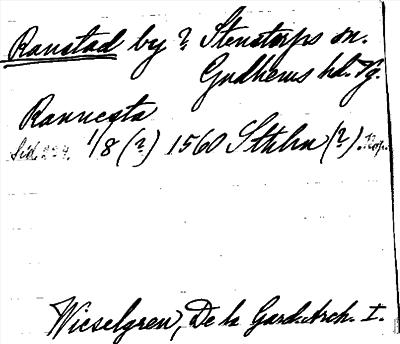 Ranstad by ? Stenstorps sn.
Gudhems hd. Vg.
Rannesta
Sid. 224. 1/8 (?) 1560 Sthlm (?). Kop.
Wieselgren, De la Gard. Arch. I.